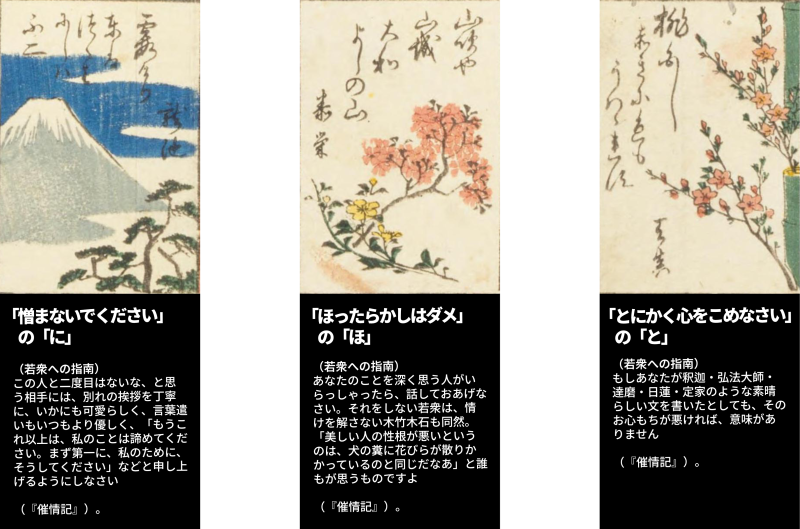 「憎まないでください」
の「に」
（若衆への指南）
この人と二度目はないな、と思
う相手には、別れの挨拶を丁寧
に、いかにも可愛らしく、言葉遣
いもいつもより優しく、「もうこ
れ以上は、私のことは諦めてくだ
さい。まず第一に、私のために、
そうしてください」などと申し上
げるようにしなさい
（『催情記』）。
山城
大和
よしの山
「ほったらかしはダメ」
の「ほ」
（若衆への指南）
あなたのことを深く思う人がい
らっしゃったら、話しておあげな
さい。それをしない若衆は、情
けを解さない木竹木石も同然。
「美しい人の性根が悪いという
のは、犬の糞に花びらが散りか
かっているのと同じだなあ」と誰
もが思うものですよ
（『催情記』）。
「とにかく心をこめなさい」
の「と」
（若衆への指南）
もしあなたが釈迦・弘法大師・
達磨・日蓮・定家のような素晴
らしい文を書いたとしても、その
お心もちが悪ければ、意味があ
りません
（『催情記』）。